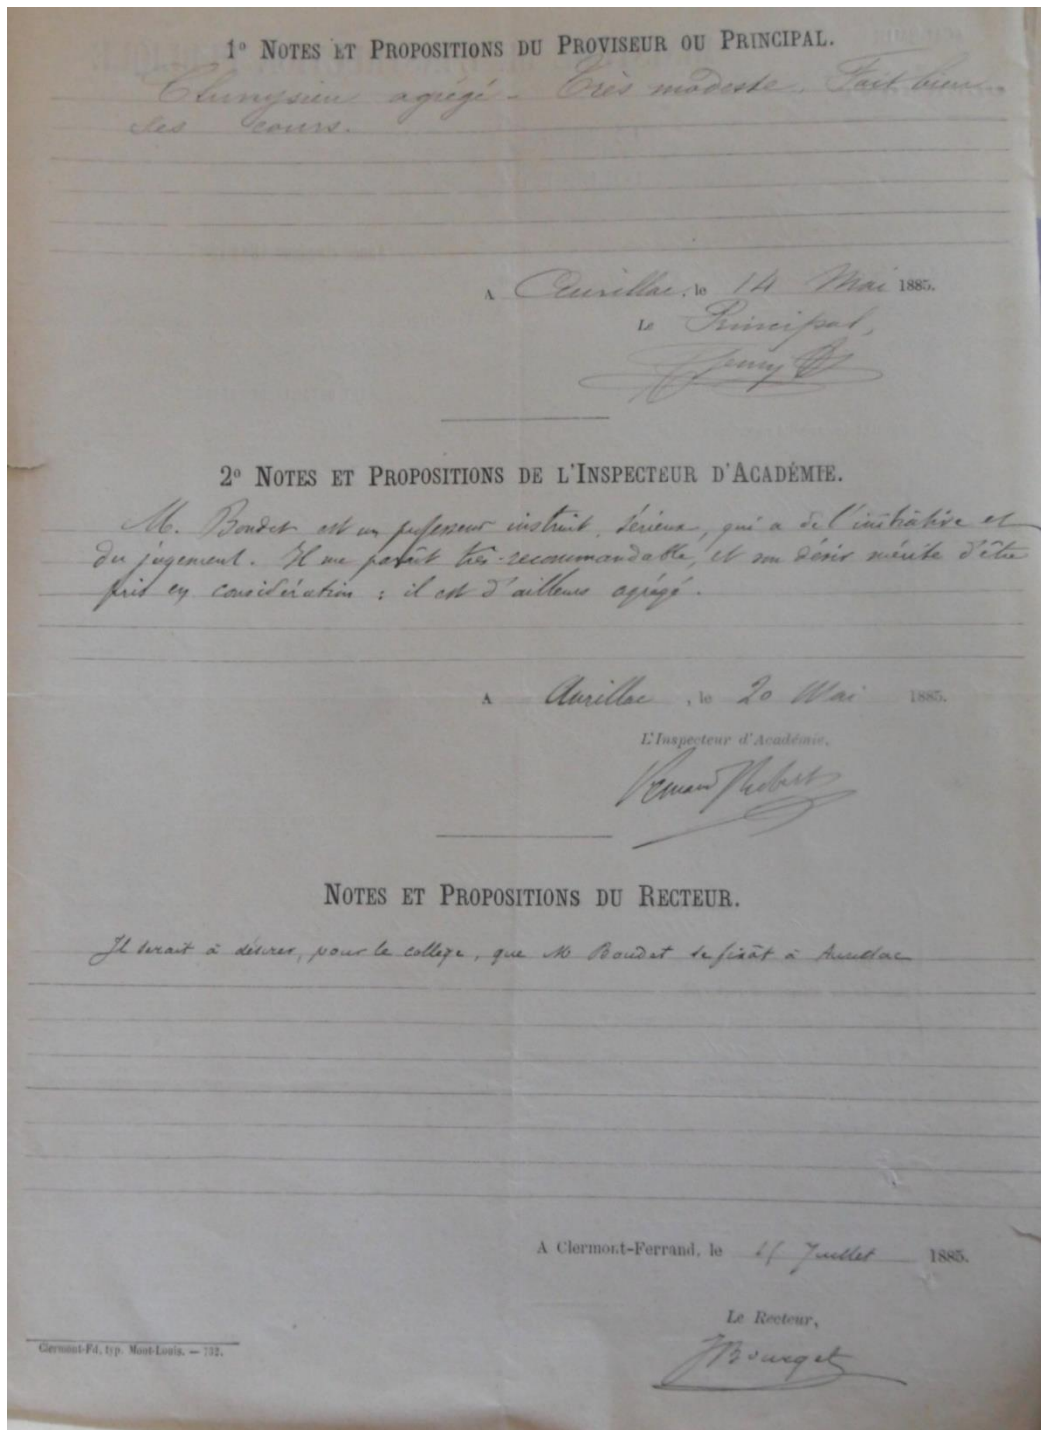 1° NOTES ET PROPOSITIONS DU PROVISEUR OU PRINCIPAL.
Clunysien agrégé - Très modeste. Fait bien
ses cours.
A Aurillac, le 14 Mai 1885.
Le Principal,
2° NOTES ET PROPOSITIONS DE L'INSPECTEUR D'ACADÉMIE.
M. Boudet est un professeur instruit, sérieux, qui a de l'initiative et
du jugement. Il me paraît très-recommandable, et son désir mérite d'être
pris en considération ; il est d'ailleurs agrégé.
A Aurillac, le 20 Mai 1885.
L'Inspecteur d'Académie,
NOTES ET PROPOSITIONS DU RECTEUR.
Il serait à désirer, pour le collège, que M Boudet se fixât à Aurillac
A Clermont-Ferrand, le Juillet 1885.
Le Recteur,
JBourget
Clermont-Fd, typ. Mont-Louis. — 732.